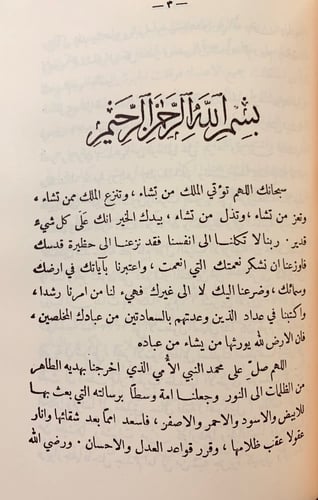 — ٣ —
بسم الله الرحمن الرحيم
سبحانك اللهم تؤتي الملك من تشاء ، وتنزع الملك ممن تشاء ،
وتعز من تشاء ، وتذل من تشاء ، بيدك الخير انك على كل شيء
قدير . ربنا لا تكلنا الى انفسنا فقد نزعنا الى حظيرة قدسك
فاوزعنا ان نشكر نعمتك التي انعمت ، واعتبرنا بآياتك في ارضك
وسمائك ، وضرعنا اليك لا الى غيرك فهيء لنا من امرنا رشدا ،
واكتبنا في عداد الذين وعدتهم بالسعادتين من عبادك المخلصين ،
فان الارض لله يورثها من يشاء من عباده
اللهم صلِّ على محمد النبي الأُمي الذي اخرجنا بهديه الطاهر
من الظلمات الى النور وجعلنا امة وسطًا برسالته التي بعث بها
للابيض والاسود والاحمر والاصفر ، فاسعد امما بعد شقائها وانار
عقولا عقب ظلامها ، وقرر قواعد العدل والاحسان . ورضي الله